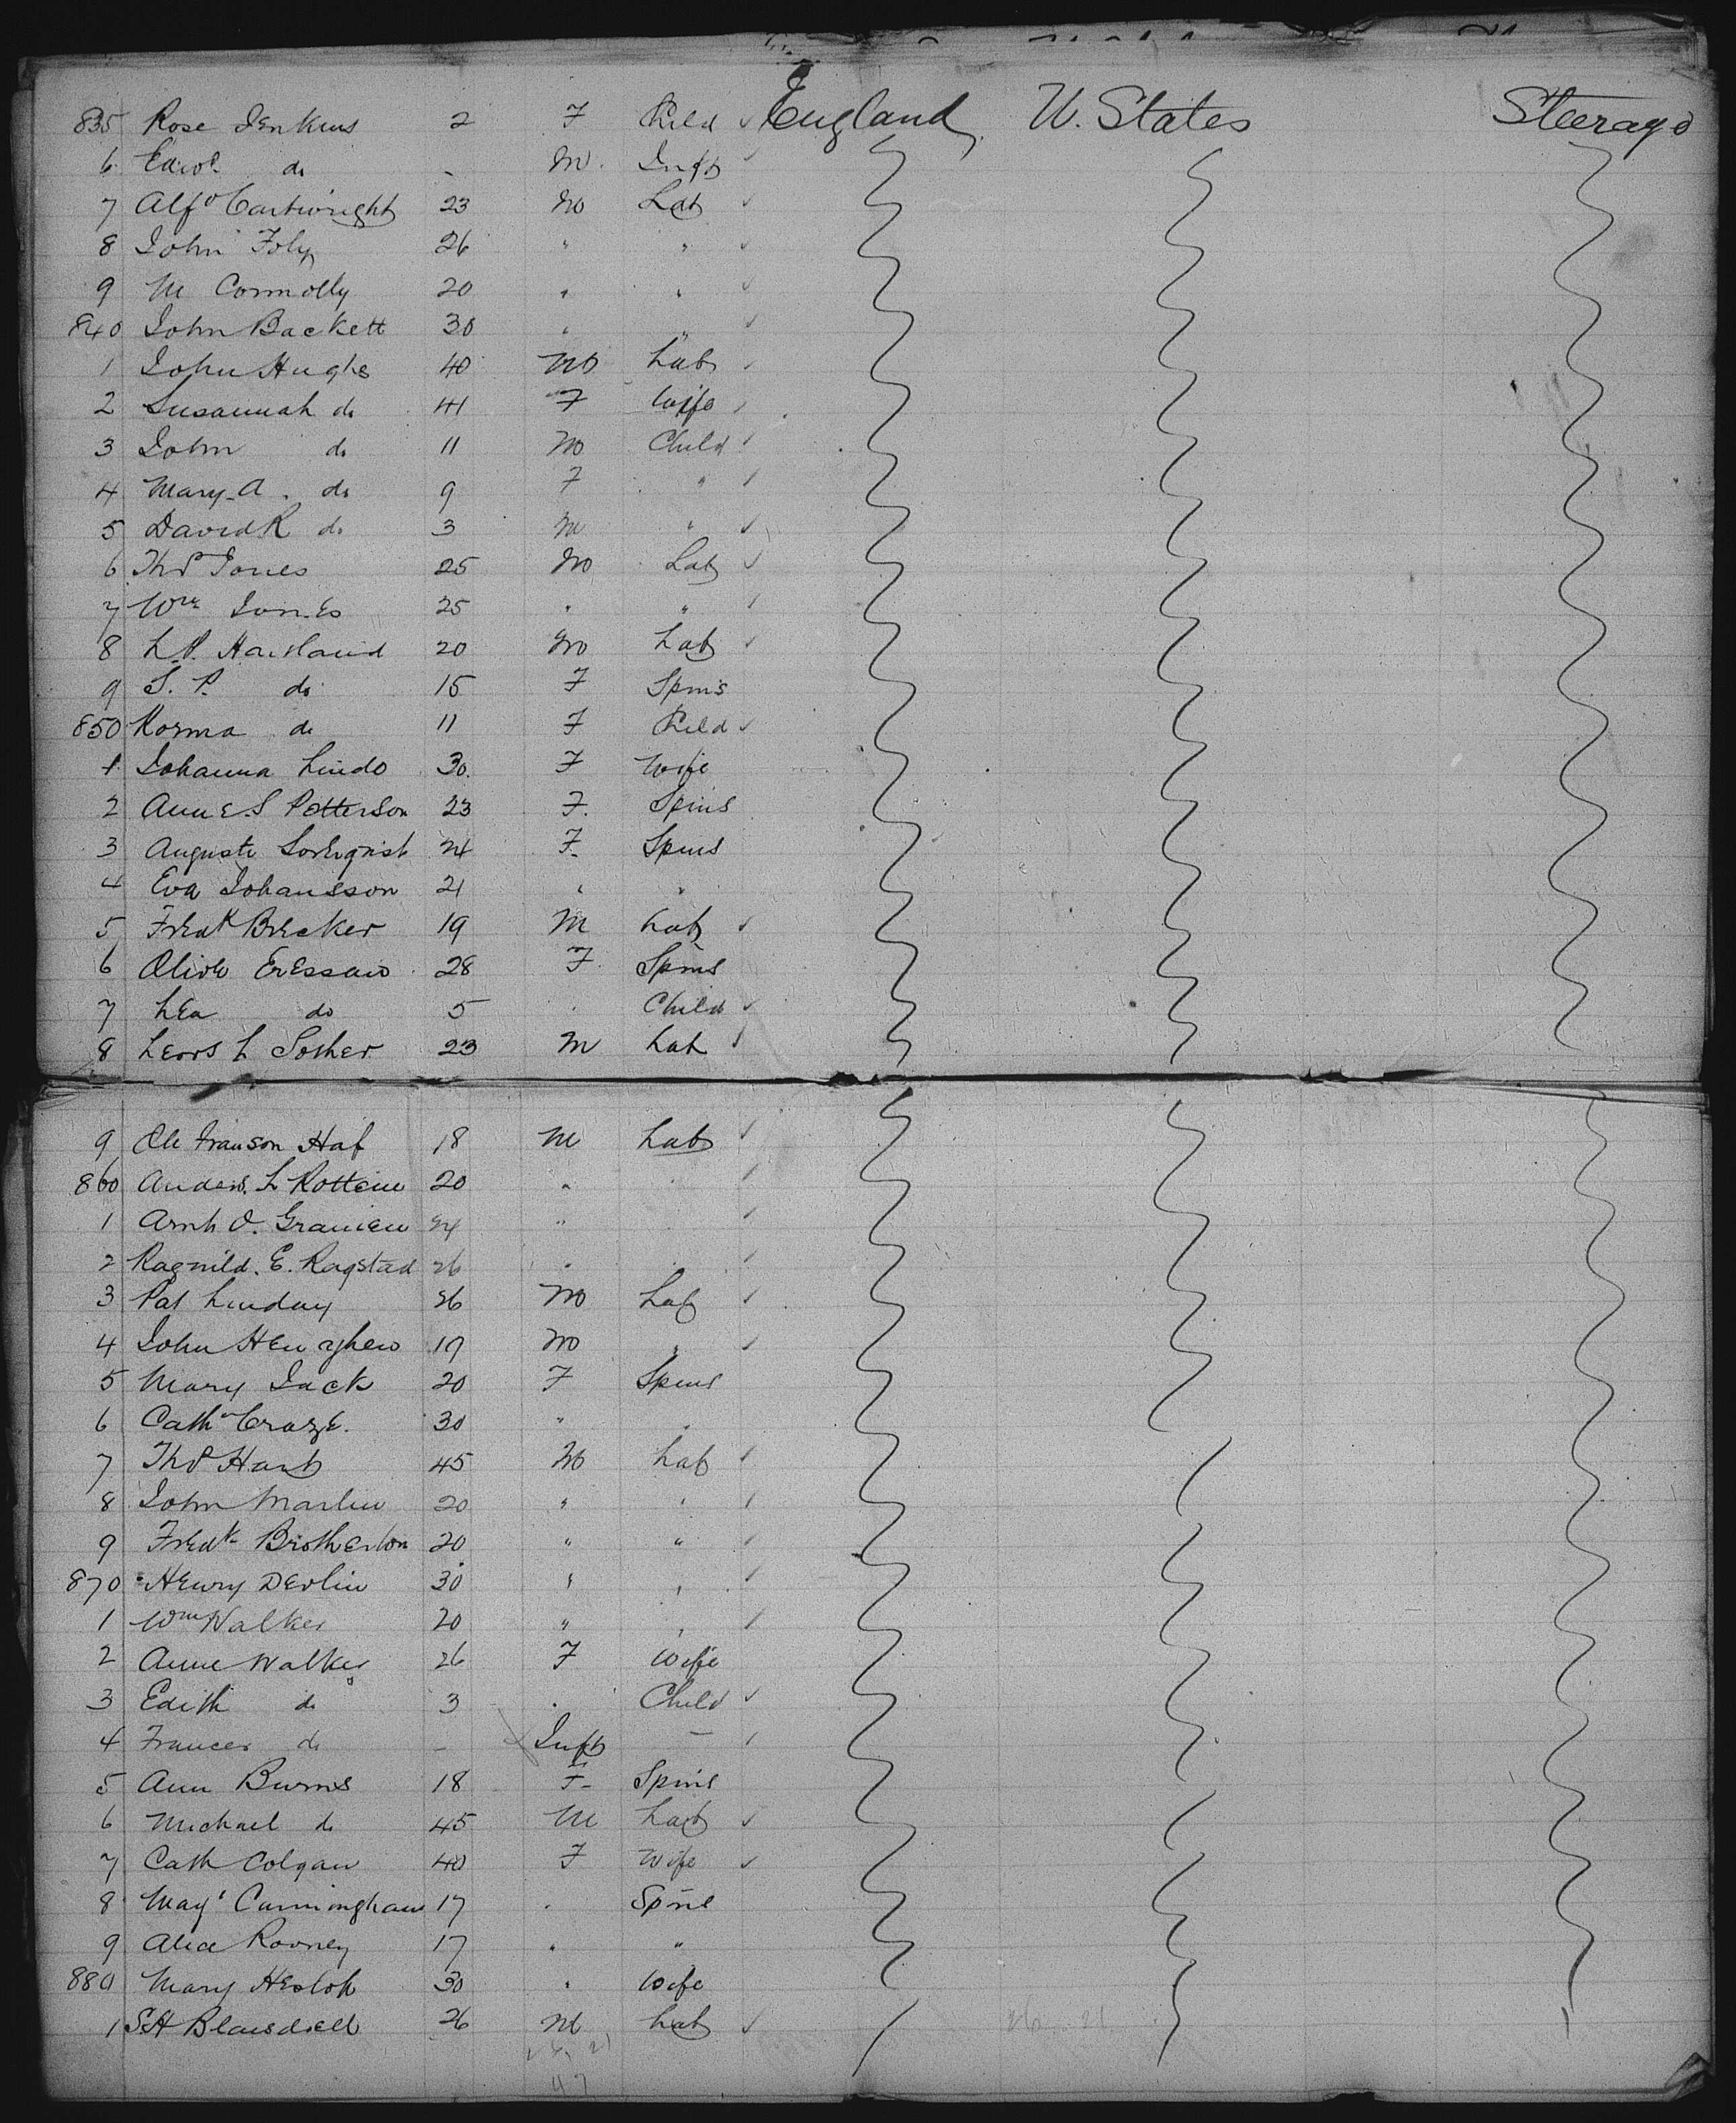 835 Rose Jenkins 2 F Child England U. States Steerage
6 do - M. Inft
7 Alfd Cartwright 23 M Lab
8 John Foly 26 " "
9 M Connolly 20 " "
840 John Backett 30 " "
1 John Hughs 40 M Lab
2 Susannah do 41 F Wife
3 John do 11 M Child
4 Mary A. do 9 F "
5 David R do 3 M "
6 Thos Jones 25 M Lab
7 Wm Jones 25 " "
8 L.P. 20 M Lab
9 S. P. do 15 F Spins
850 Korma do 11 F Child
1 Johanna Lindo 30. F Wife
2 Anne.S Petterson 23 F. Spins
3 Auguste 24 F. Spins
4 Eva Johansson 21 " "
5 Fredk Brecker 19 M Lab
6 Olive 28 F. Spins
7 Lea do 5 " Child
8 L 23 M Lab
9 Ole Haf 18 M Lab
860 Anders. L 20 "
1 O. 24 "
2 Ragnild. E. Rogstad 26 "
3 Pat 26 M Lab
4 John 19 M "
5 Mary Jack 20 F Spins
6 Cath Craze. 30 " "
7 Thos Hart 45 M Lab
8 John 20 " "
9 Fredk Brotherton 20 " "
870 Henry Devlin 30 " "
1 Wm Walker 20 " "
2 Anne Walker 26 F Wife
3 Edith do 3 " Child
4 Frances do - Inft -
5 Ann Burns 18 F- Spins
6 Michael do 45 M Lab
7 Cath Colgan 40 F Wife
8 Cunningham 17 " Spins
9 Alice Rooney 17 " "
880 Mary 30 " Wife
1 SH Blaisdell 26 M Lab